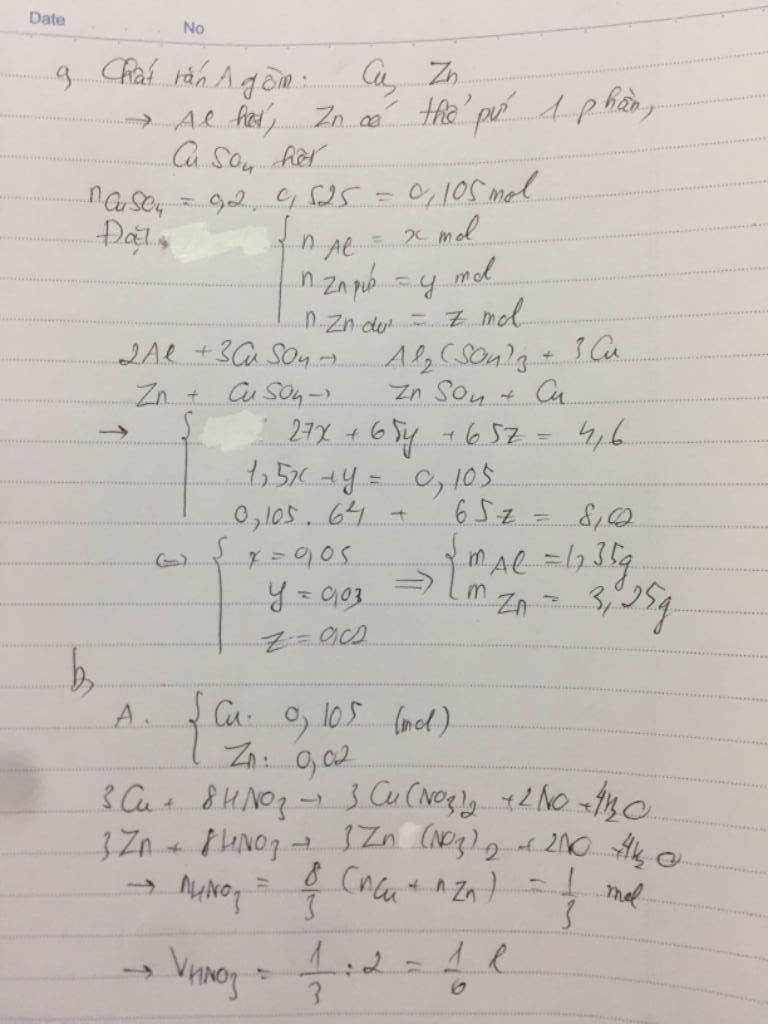 Date
No
a, Chất rắn A gồm: Cu, Zn
→ Al hết, Zn có thể pứ 1 phần,
CuSO4 hết
nCuSO4 = 0,2. 0,525 = 0,105 mol
Đặt
{ n Al = x mol
n Zn pứ = y mol
n Zn dư = z mol
2Al + 3CuSO4 → Al2(SO4)3 + 3Cu
Zn + CuSO4 → ZnSO4 + Cu
→ { 27x + 65y + 65z = 4,6
1,5x + y = 0,105
0,105. 64 + 65z = 8,02
(=) { x = 0,05 => { m Al = 1,35g
y = 0,03 m Zn = 3,25g
z = 0,02
b,
A. { Cu: 0,105 (mol)
Zn: 0,02
3Cu + 8HNO3 → 3Cu(NO3)2 + 2NO + 4H2O
3Zn + 8HNO3 → 3Zn(NO3)2 + 2NO + 4H2O
→ nHNO3 = 8/3 (nCu + nZn) = 1/3 mol
→ VHNO3 = 1/3 : 2 = 1/6 l